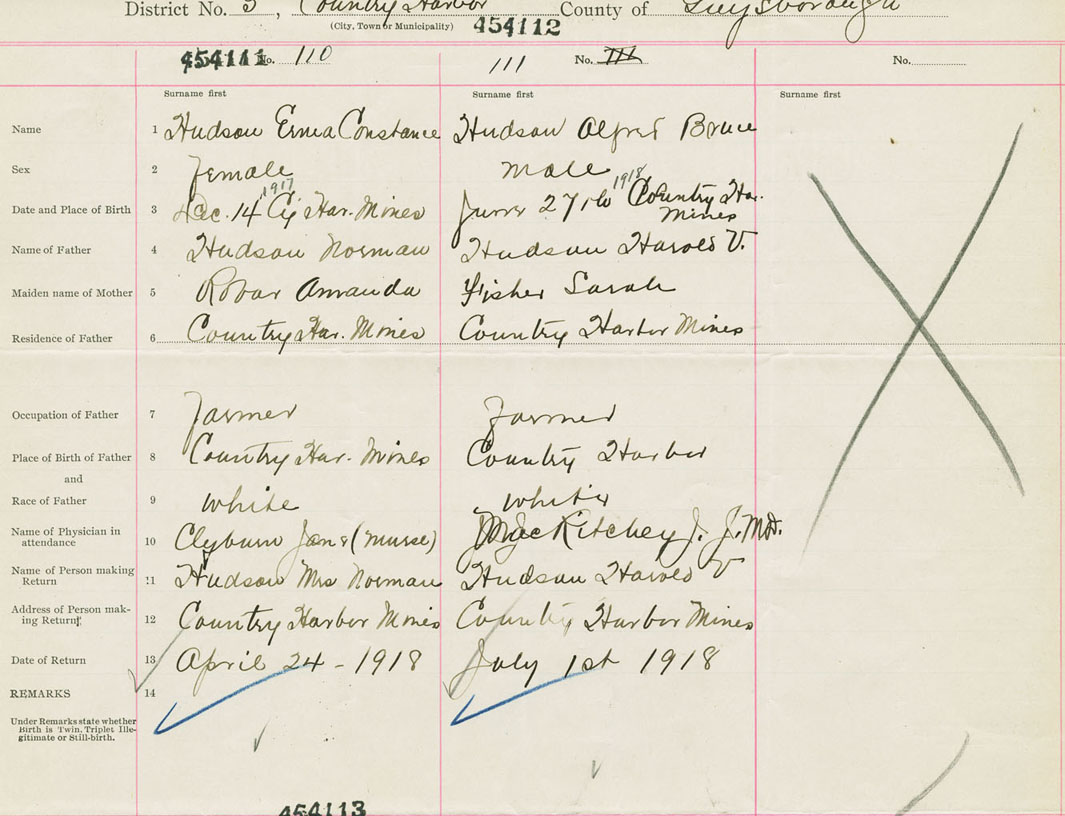 District No. 5, Country Harbor County of Guysborough
(City, Town or Municipality) 454112
454111 No. 110 111 No. 111 No.
Surname first Surname first Surname first
Name 1 Hudson Erma Constance Hudson Alfred Bruce
Sex 2 Female male
1917 1918
Date and Place of Birth 3 Dec. 14 Cy Har. Mines June 27th Country Har. Mines
Name of Father 4 Hudson Norman Hudson Harold V.
Maiden name of Mother 5 Amanda Fisher Sarah
Residence of Father 6 Country Har. Mines Country Harbor Mines
Occupation of Father 7 Farmer Farmer
Place of Birth of Father 8 Country Har. Mines Country Harbor
and
Race of Father 9 White White
Name of Physician in
attendance 10 Clyburn Jane (nurse) MacRitchey J. J. M.D.
Name of Person making
Return 11 Hudson Mrs Norman Hudson Harold V
Address of Person mak-
ing Return 12 Country Harbor Mines Country Harbor Mines
Date of Return 13 April 24 - 1918 July 1st 1918
REMARKS 14
Under Remarks state whether
Birth is Twin, Triplet Ille-
gitimate or Still-birth.
454113